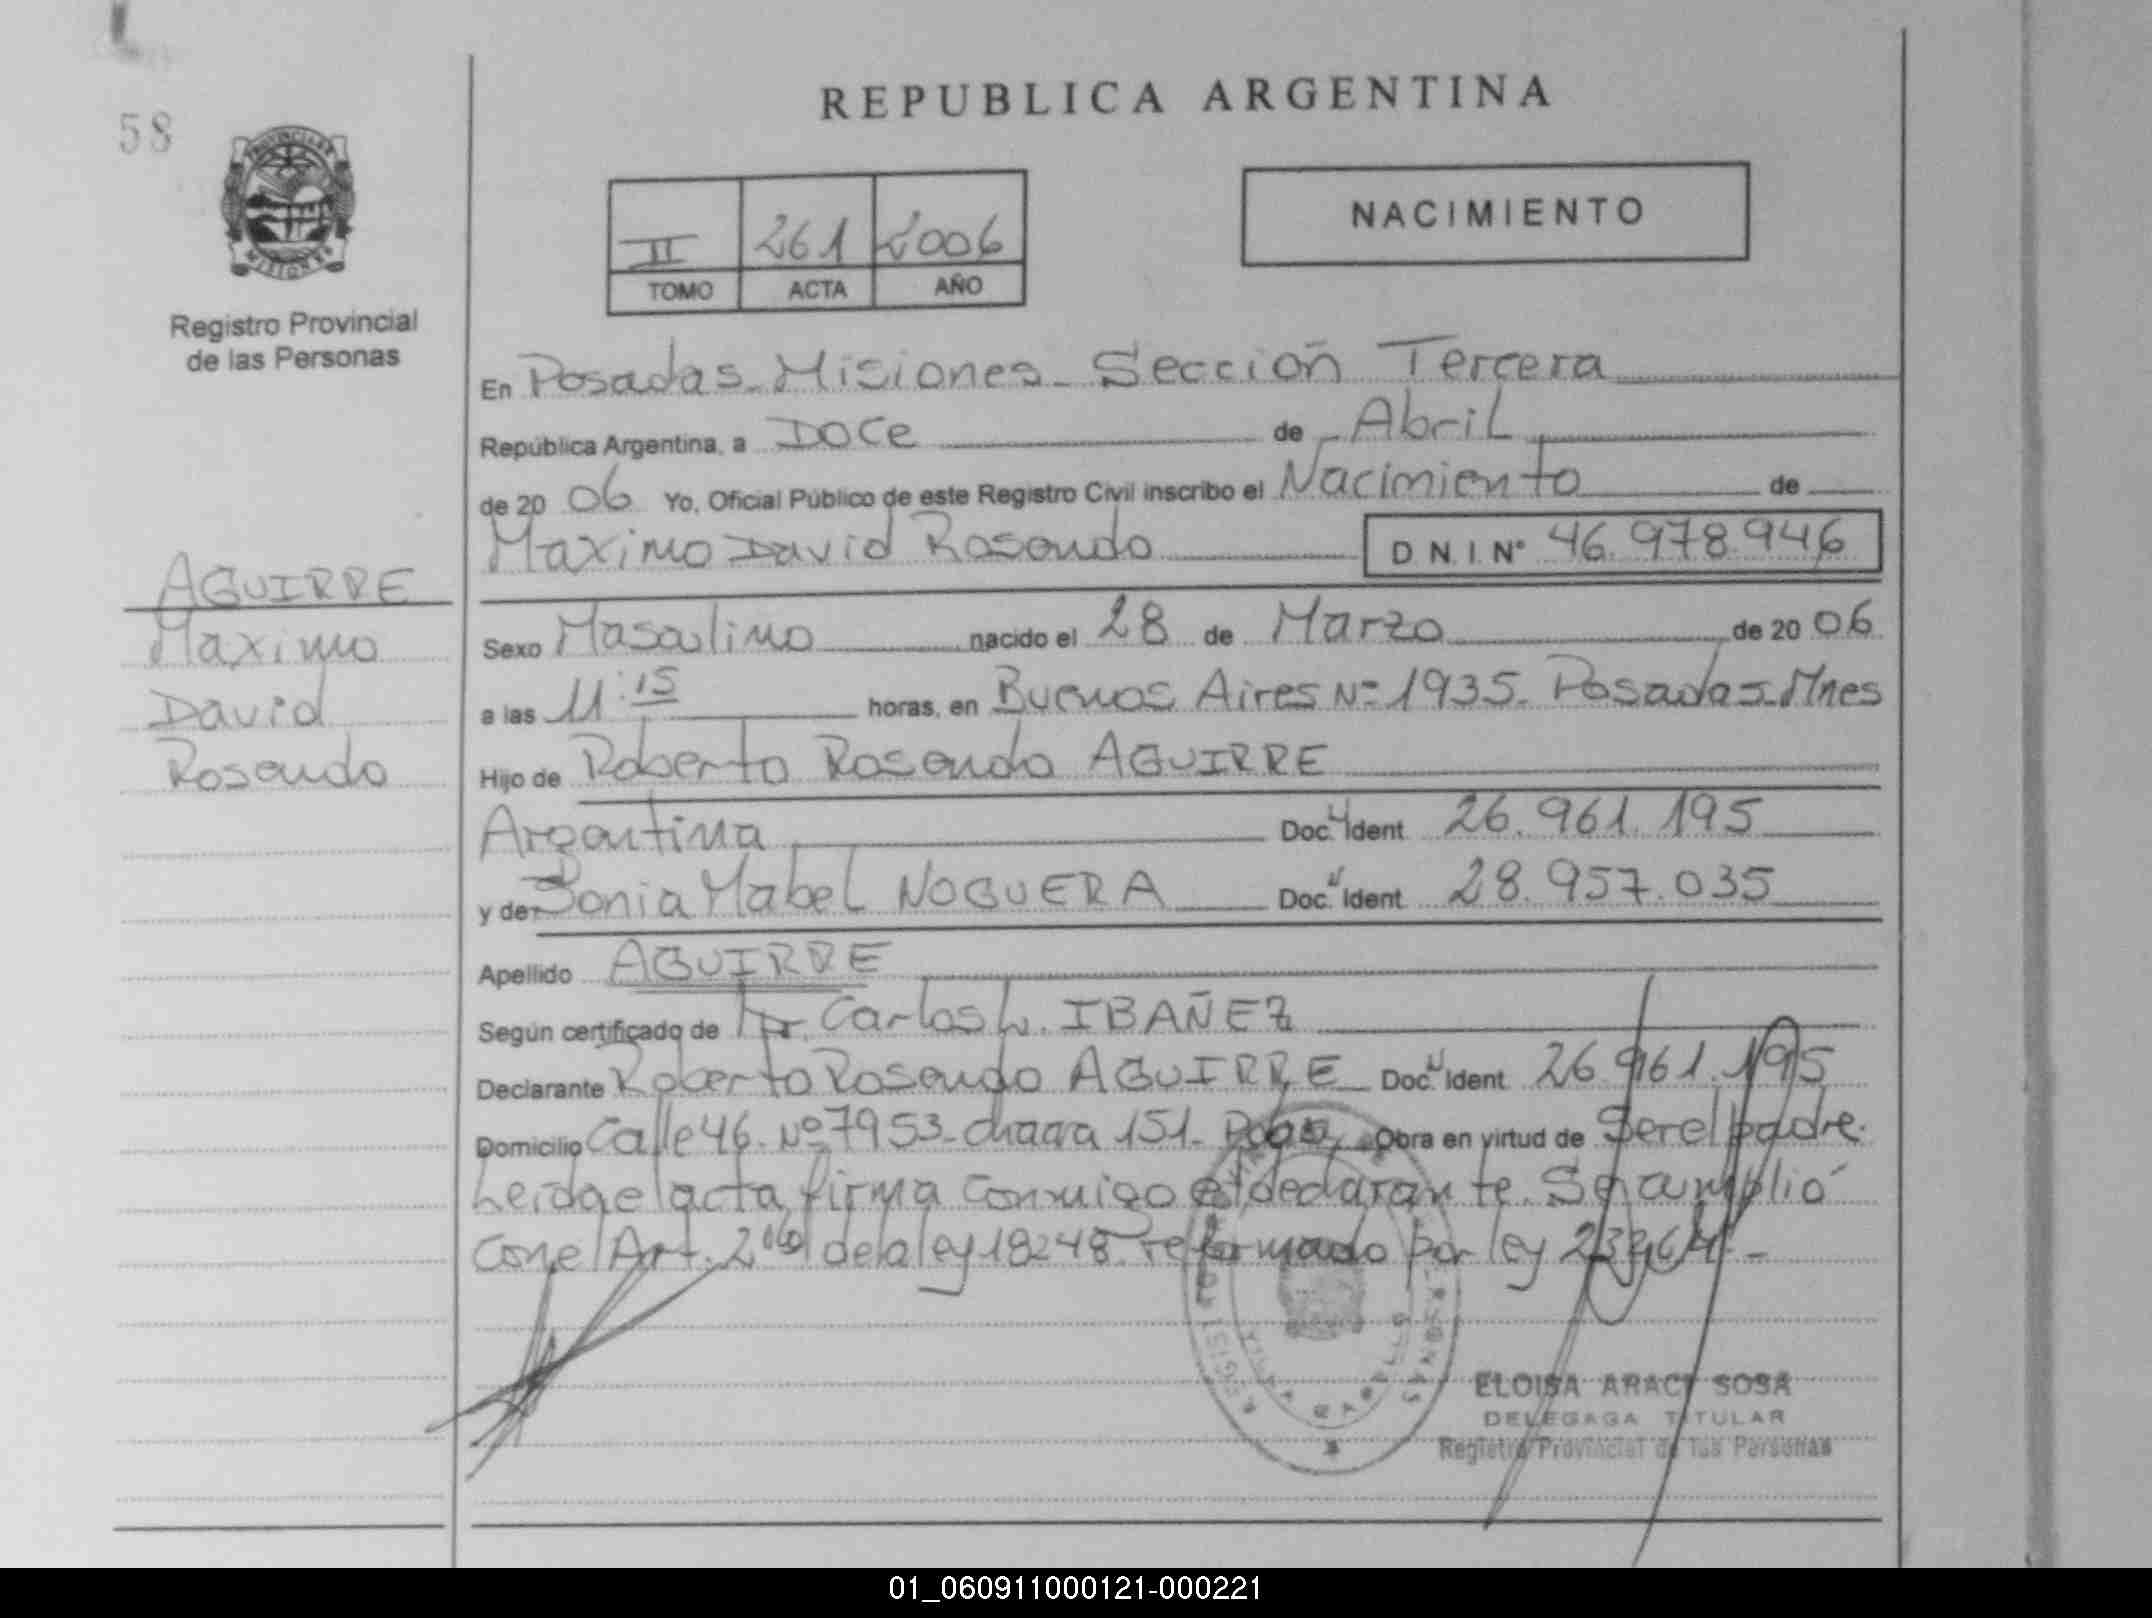 58
PROVINCIA DE
MISIONES
Registro Provincial
de las Personas
AGUIRRE
Maximo
David
Rosendo
REPUBLICA ARGENTINA
II 261 2006
TOMO ACTA AÑO
NACIMIENTO
En Posadas - Misiones - Sección Tercera
República Argentina, a Doce de Abril
de 20 06 Yo, Oficial Público de este Registro Civil inscribo el Nacimiento de
Maximo David Rosendo D.N.I. N° 46.978.946
Sexo Masculino nacido el 28 de Marzo de 20 06
a las 11:15 horas, en Buenos Aires Nº 1935. Posadas - Mnes
Hijo de Roberto Rosendo AGUIRRE
Argentina Doc. Ident 26.961.195
y de Sonia Mabel NOGUERA Doc. Ident 28.957.035
Apellido AGUIRRE
Según certificado de Dr. Carlos L. IBAÑEZ
Declarante Roberto Rosendo AGUIRRE Doc. Ident 26.961.195
Domicilio Calle 46 - Nº 7953 - chacra 151 - Obra en virtud de Ser el padre.
Leida el acta, firma conmigo el declarante. Se amplió
Con el Art. 2 de la ley 18248 reformado por ley
ELOISA ARACI SOSA
DELEGAGA TITULAR
Registro Provincial de las Personas
01_060911000121-000221